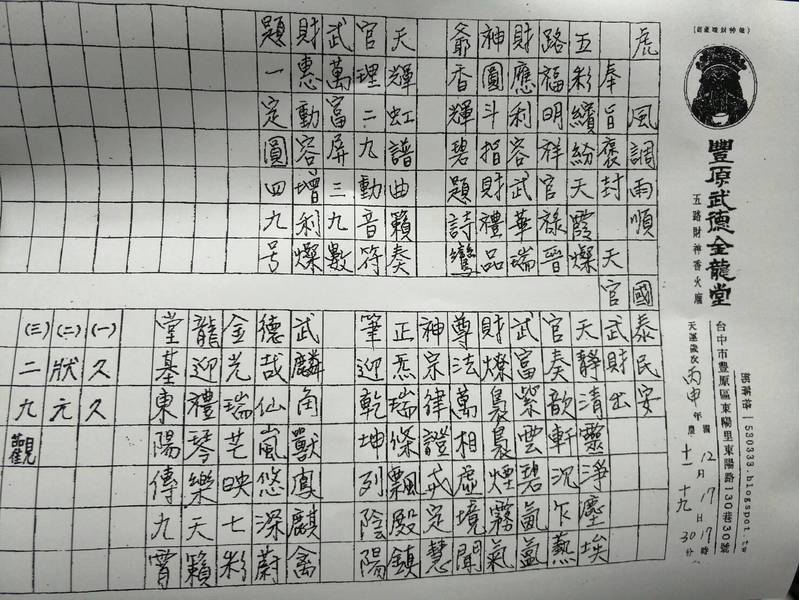 豐原武德金龍堂
五路財神香火廟
台中市豐原區東陽里東陽路130巷30號
部落格 530333.blogspot.tw
天運歲次丙申年 國12月17日17時
農十一 十九 30分
虎 風調雨順
國泰民安
奉旨褒封 天官武財出
五彩繽紛天霞燦
路福明祥官祿晉
財應利容武華瑞
神圓斗指財禮品
爺香輝碧題詩鸞
天輝虹譜曲籟奏
官理二九動音符
武萬富屏三九數
財惠動容增利燦
題一定圓四九号
天靜清靈淨塵埃
官奏歆軒沉乍熱
武富紫雲碧氤氳
財燎裊裊煙霧氣
尊法萬相虛境聞
神宗律證戒定慧
正炁瑞條飄殿鎮
筆迎乾坤列陰陽
武麟角獸鳳麒禽
德哉仙嵐悠深蔚
金光瑞芒映七彩
龍迎禮琴樂天籟
堂基東陽傳九霄
(一)久久
(二)狀元
(三)二九